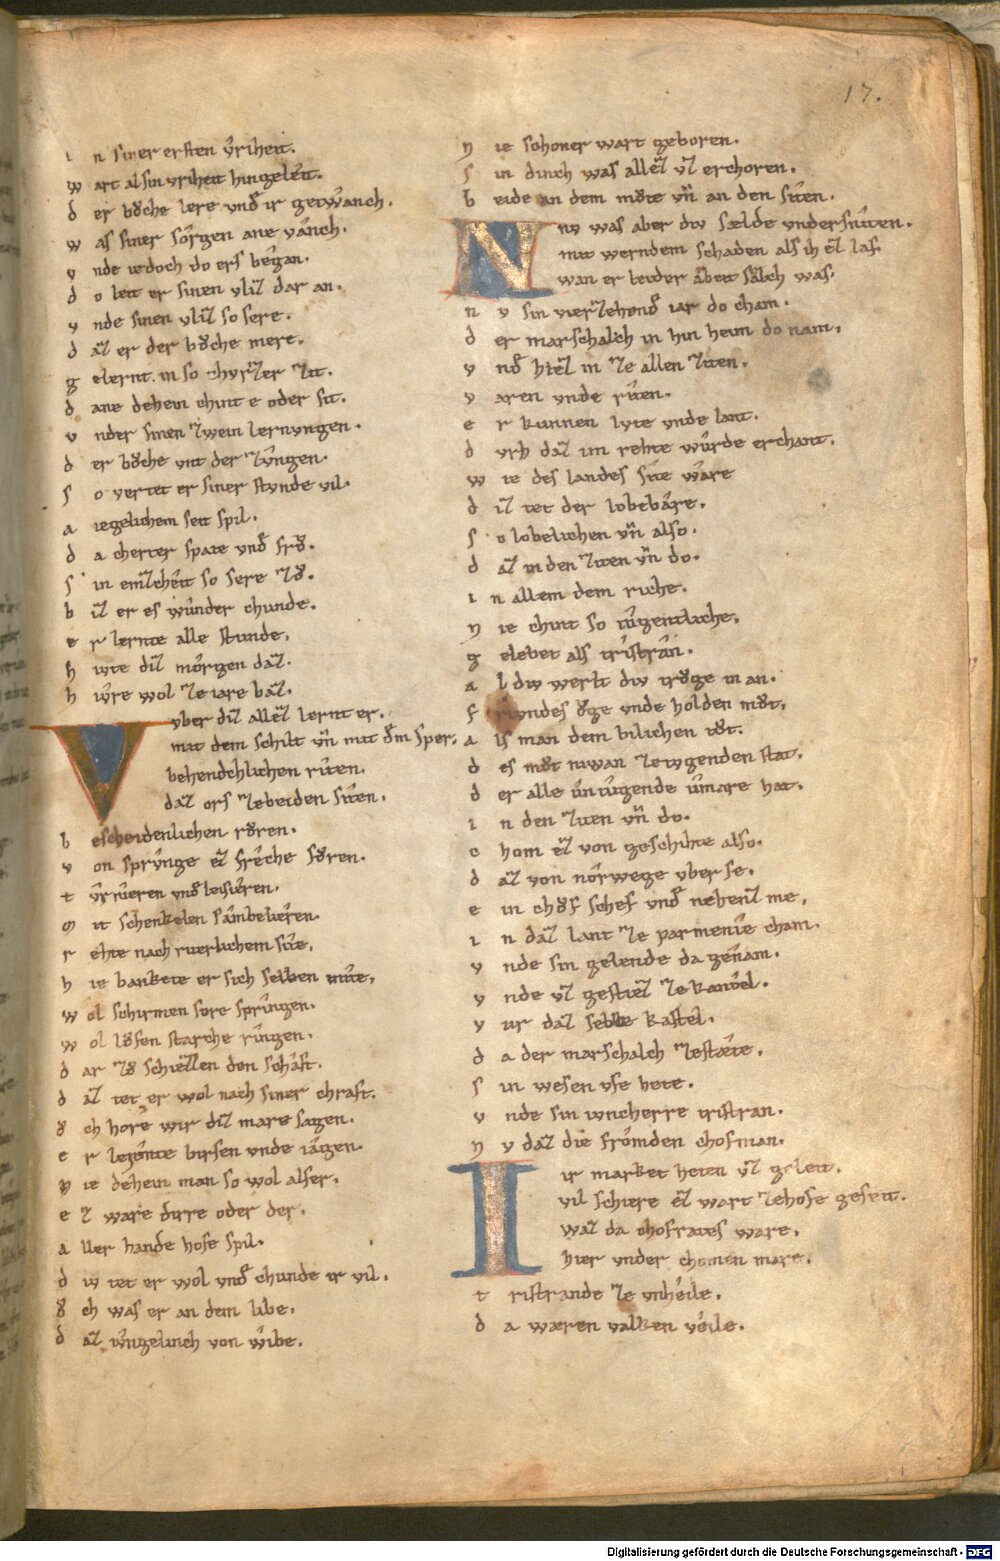 17.
i n siner ersten vriheit.
w art al sin vriheit hin geleit.
d er bůche lere vnd̄ ir getwanch.
w as siner sorgen ane vanch.
v nde iedoch do ers began.
d o leit er sinen vliz dar an.
v nde sinen vliz so sere.
d az er der bůche mere.
g elernt in so churzer zit.
d ane dehein chint e oder sit.
v nder sinen zwein lernvngen.
d er bůche vnt der zvngen.
s o vertet er siner stvnde vil.
a iegelichem seit spil.
d a cherter spate vnd̄ frů.
s in emzicheit so sere zů.
b iz er es wunder chunde.
e r lernte alle stunde.
h ivte diz morgen daz.
h ivre wol ze iare baz.
V vber diz allez lernt er.
mit dem schilt vn̄ mit dem sper.
behendchlichen riten.
daz ors ze beiden siten.
b escheidenlichen růren.
v on sprvnge ez freche fůren.
t vrnieren vnd̄ leisieren.
m it schenkelen sambelieren.
r ehte nach riterlichem site.
h ie bankete er sich selben mite.
w ol schirmen sere springen.
w ol lŏfen starche ringen.
d ar zů schiezzen den schaft.
d az tet er wol nach siner chraft.
ŏ ch hore wir diz mare sagen.
e r lernte birsen vnde iagen.
n ie dehein man so wol alser.
e z ware dirre oder der.
a ller hande hofe spil.
d iv tet er wol vnd̄ chunde ir vil.
ŏ ch was er an dem libe.
d az ivngelinch von wibe.
n ie schoner wart geboren.
s in dinch was allez vz erchoren.
b eide an dem můte vn̄ an den siten.
N nv was aber div sælde vndersniten.
mit werndem schaden als ih ez las.
wan er leider arbeit sælch was.
n v sin vierzehend̄ iar do cham.
d er marschalch in hin heim do nam.
v nd̄ hiez in ze allen ziten.
v aren vnde riten.
e r kunnen lvte vnde lant.
d vrh daz im rehte wurde erchant.
w ie des landes site ware
d iz tet der lobebare.
s o lobelichen vn̄ also.
d az in den ziten vn̄ do.
i n allem dem riche.
n ie chint so tvgentliche.
g elebet als tristran.
a l div werlt div trůge in an.
f rivndes ŏge vnde holden můt.
a ls man dem bilichen tůt.
d es můt niwan ze tvgenden stat.
d er alle vntvgende vnmare hat.
i n den ziten vn̄ do.
c hom ez von geschihte also.
d az von norwege vber se.
e in chŏf schef vnd̄ neheinz me.
i n daz lant ze parmenie cham.
v nde sin gelende da genam.
v nde vz gestiez ze kanoel.
v ur daz selbe kastel.
d a der marschalch ze stæte.
s in wesen vfe hete.
v nde sin ivncherre tristran.
n v daz die fromden chofman.
I ir market heten vz geleit.
vil schiere ez wart ze hofe geseit.
waz da chofrates ware.
hier vnder chomen mare.
t ristrande ze vnheile.
d a wæren valken veile.
Digitalisierung gefördert durch die Deutsche Forschungsgemeinschaft - DFG